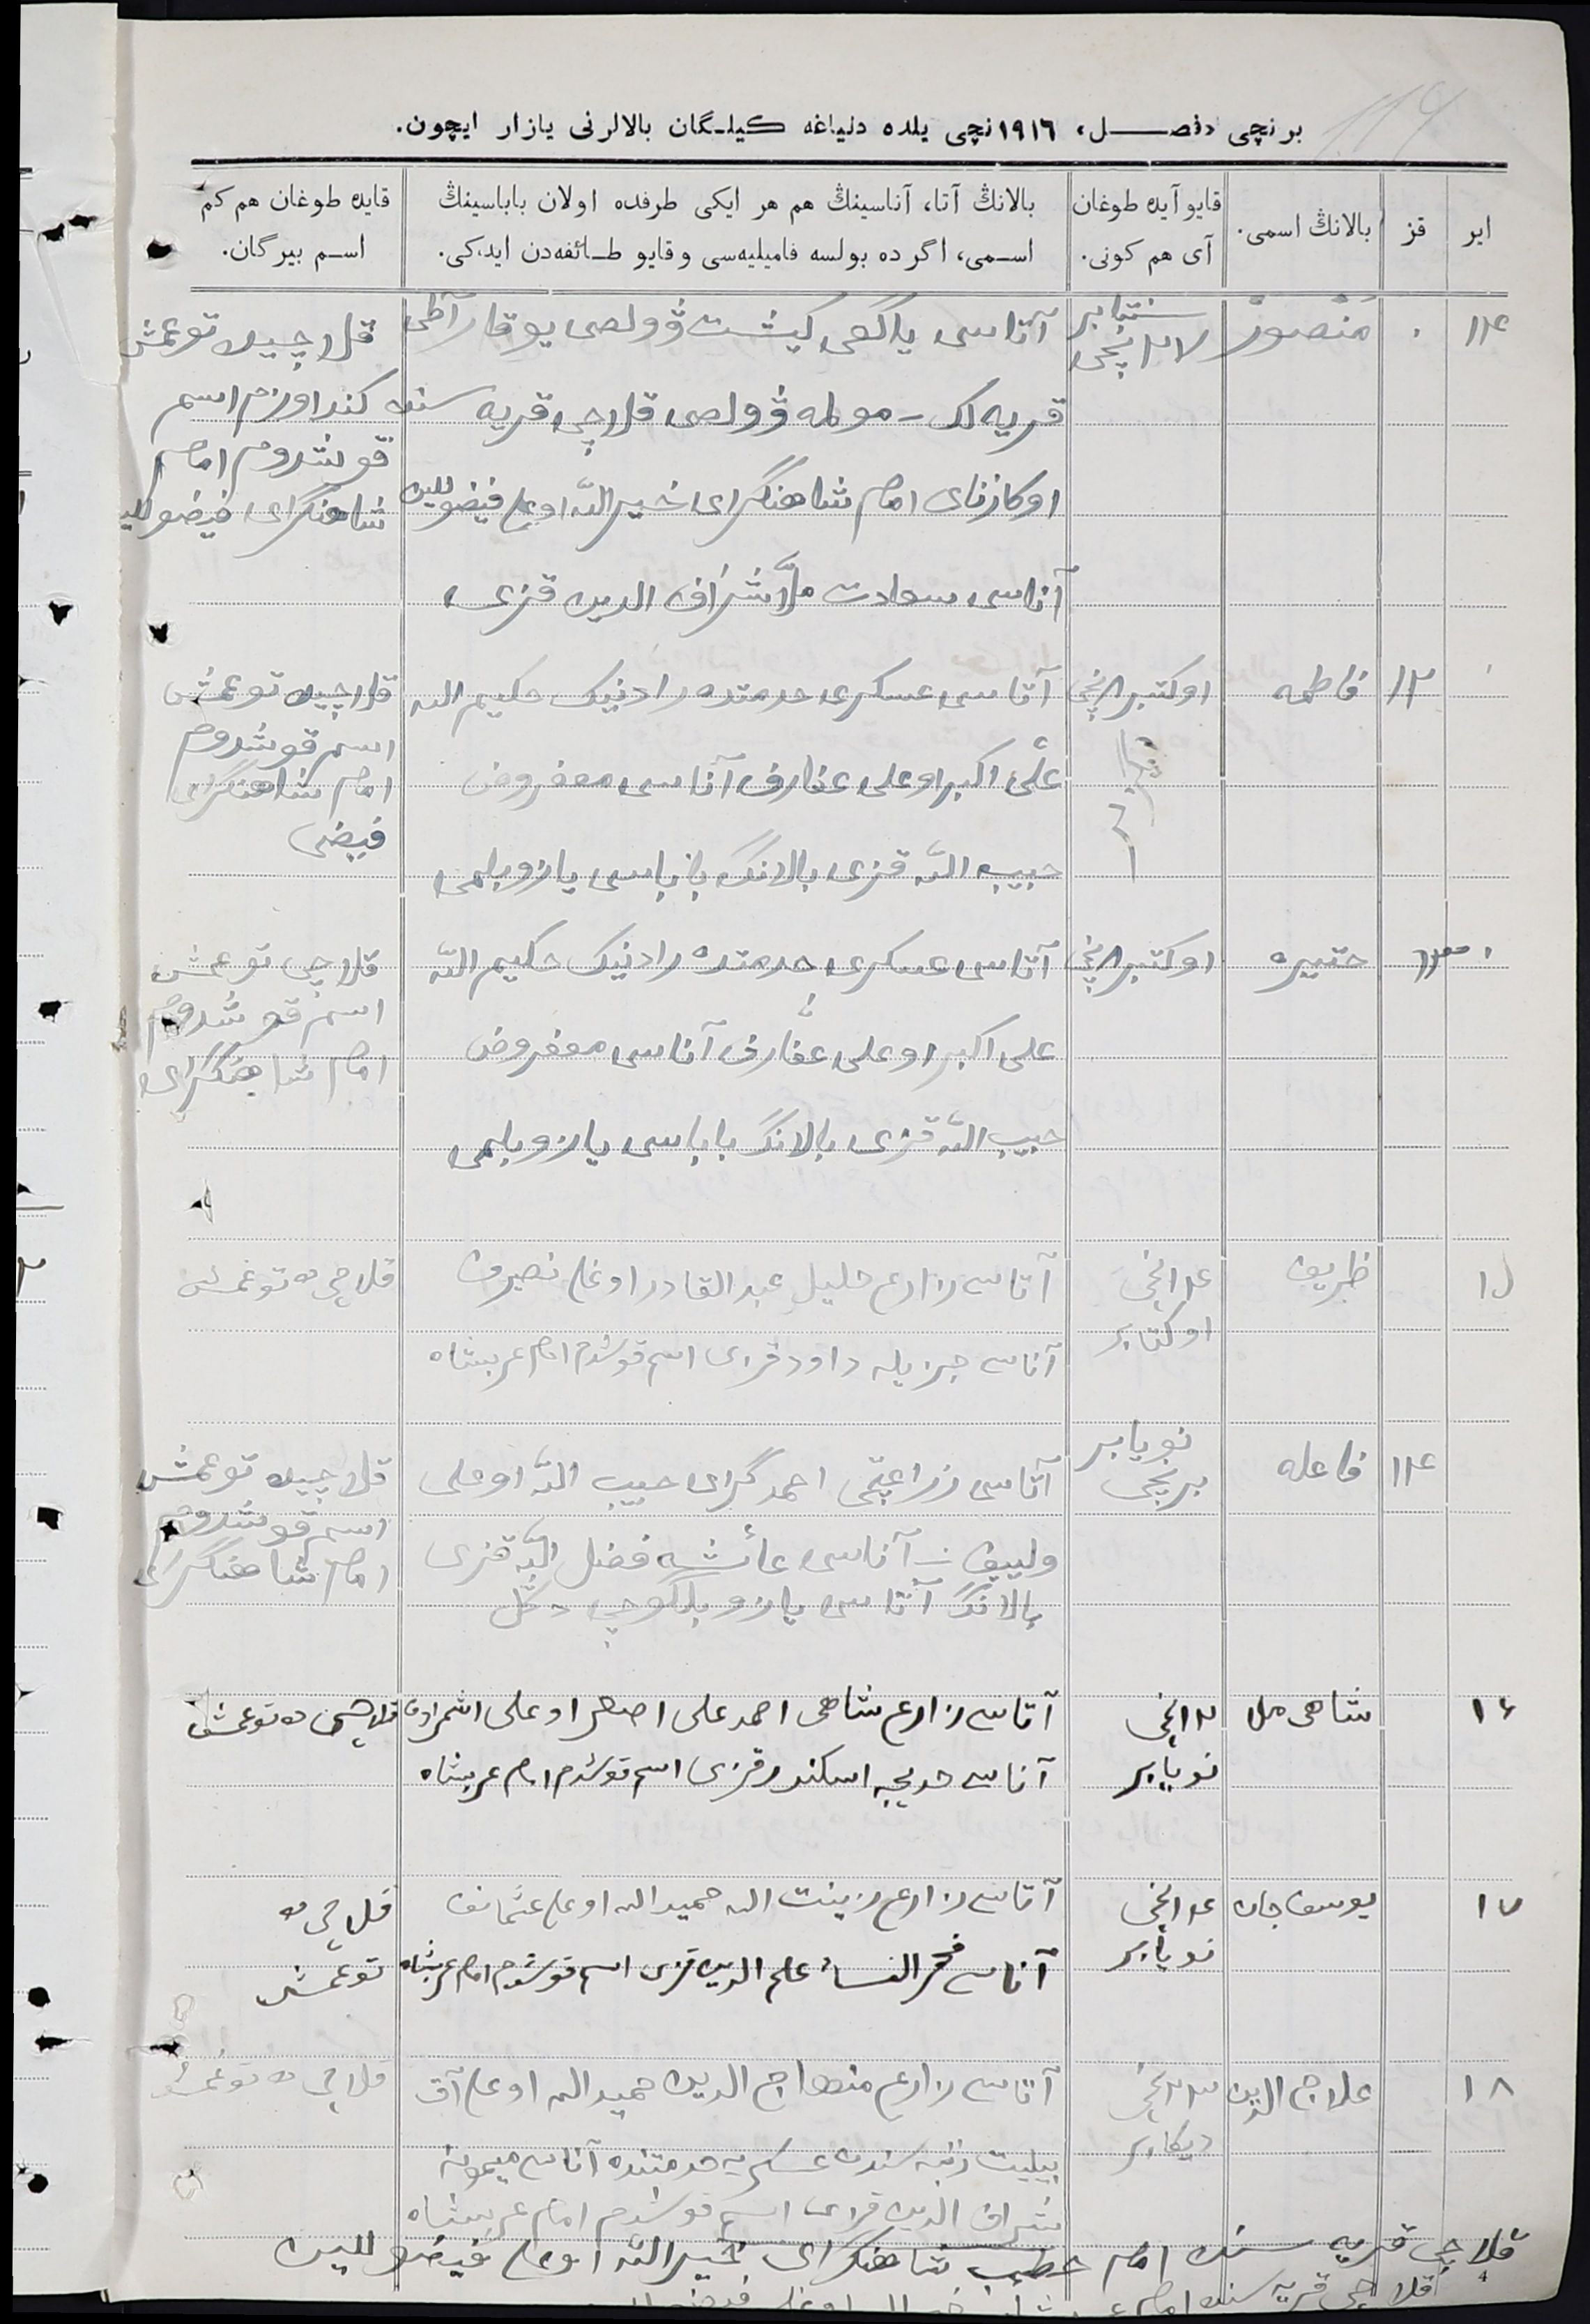 برنچی «فصل» ١٩١٦نچی یلده دنیاغه کیلگان بالالرنی یازار ایچون.
ایر
قز
بالانڭ اسمی.
قایو آیده طوغان
آی هم کونی.
بالانڭ آتا، آناسینڭ هم هر ایکی طرفده اولان باباسینڭ
اسمی، اگر ده بولسه فامیلیه‌سی و قایو طائفه‌دن ایدکی.
قایده طوغان هم کم
اسم بیرگان.
١١٤
منصور
سنتابر
آتاسی یاڭی کیشت ۋولصی یوقار آطی
قریه لک - موله ۋولصی قلاچی قریه سنده
اوکازنای امام شاهنگرای خیرالله اوغلی فیضوللین
آناسی سعادت ملا شراف الدین قزی
قلاچیده توغمش
کند اوزم اسم
قوشدوم امام
شاهنگرای فیضوللین
١٣
فاطمه
اوکتبر ٨نچی
آتاسی عسکری حدمتده رادنیک حکیم الله
علی اکبر اوغلی غفارف آناسی مغفروض
حبیب الله قزی بالانگ باباسی یازو بلمی
قلاچیده توغمش
اسم قوشدوم
امام شاهنگرای
فیضی
١٣
اوکتبر ٨نچی
آتاسی عسکری حدمتده رادنیک حکیم الله
علی اکبر اوغلی غفارف آناسی مغفروض
حبیب الله قزی بالانگ باباسی یازو بلمی
قلاچی توغمش
اسم قوشدوم
امام شاهنگرای
١٥
ظریف
١٤نچی
اوکتابر
آتاسی زارع خلیل عبدالقادر اوغلی نصیروف
آناسی جزیله داود قزی اسم قوشدم امام عربشاه
قلاچی ده توغمش
١١٤
فاعله
نویابر
برنچی
آتاسی زراعچی احمدگرای حبیب الله اوغلی
ولییف - آناسی عائشه فضل الله قزی
بالانگ آتاسی یازو بلگوچی دگل
قلاچیده توغمش
اسم قوشدوم
امام شاهنگرای
١٦
شاهی مل
١٣نچی
نویابر
آتاسی زارع شاهی احمد علی اصغر اوغلی
آناسی خدیجه اسکندر قزی اسم قوشدم امام عربشاه
قلاچی ده توغمش
١٧
یوسف جان
١٤نچی
نویابر
آتاسی زارع زینت الله حمید الله اوغلی عثمانف
آناسی فخر النساء علم الدین قزی اسم قوشدم امام عربشاه
قلاچی ده
توغمش
١٨
علاج الدین
٢٣نچی
دیکابر
آتاسی زارع منهاج الدین حمید الله اوغلی آق
بیلیت رتبه سنده عسکریه حدمتنده آناسی میمونه
شراف الدین قزی اسم قوشدم امام عربشاه
قلاچی ده توغمش
قلاچی قریه سنده امام خطیب شاهنگرای خیرالله اوغلی فیضوللین
4
قلاچی قریه سنده امام